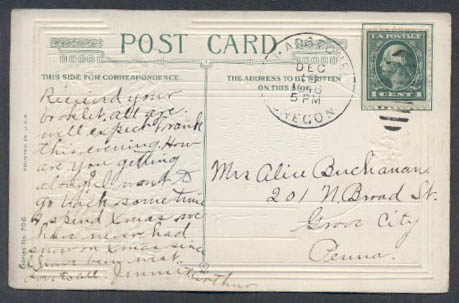 POST CARD
THIS SIDE FOR CORRESPONDENCE.
ADDRESS TO BE WRITTEN
ON THIS SIDE.
GLADSTONE
DEC
5 PM
OREGON
U.S. POSTAGE
1 CENT 1
PRINTED IN U.S.A.
Series No. 706
Received your
booklet all are
will expect Frank
this evening. How
are you getting
along? I want to
go back sometime
& spend Xmas we
have never had
snow on Xmas since
been west.
Love to all.
Arthur
Mrs Alice Buchanan
201 N. Broad St.
Grove City
Penna.